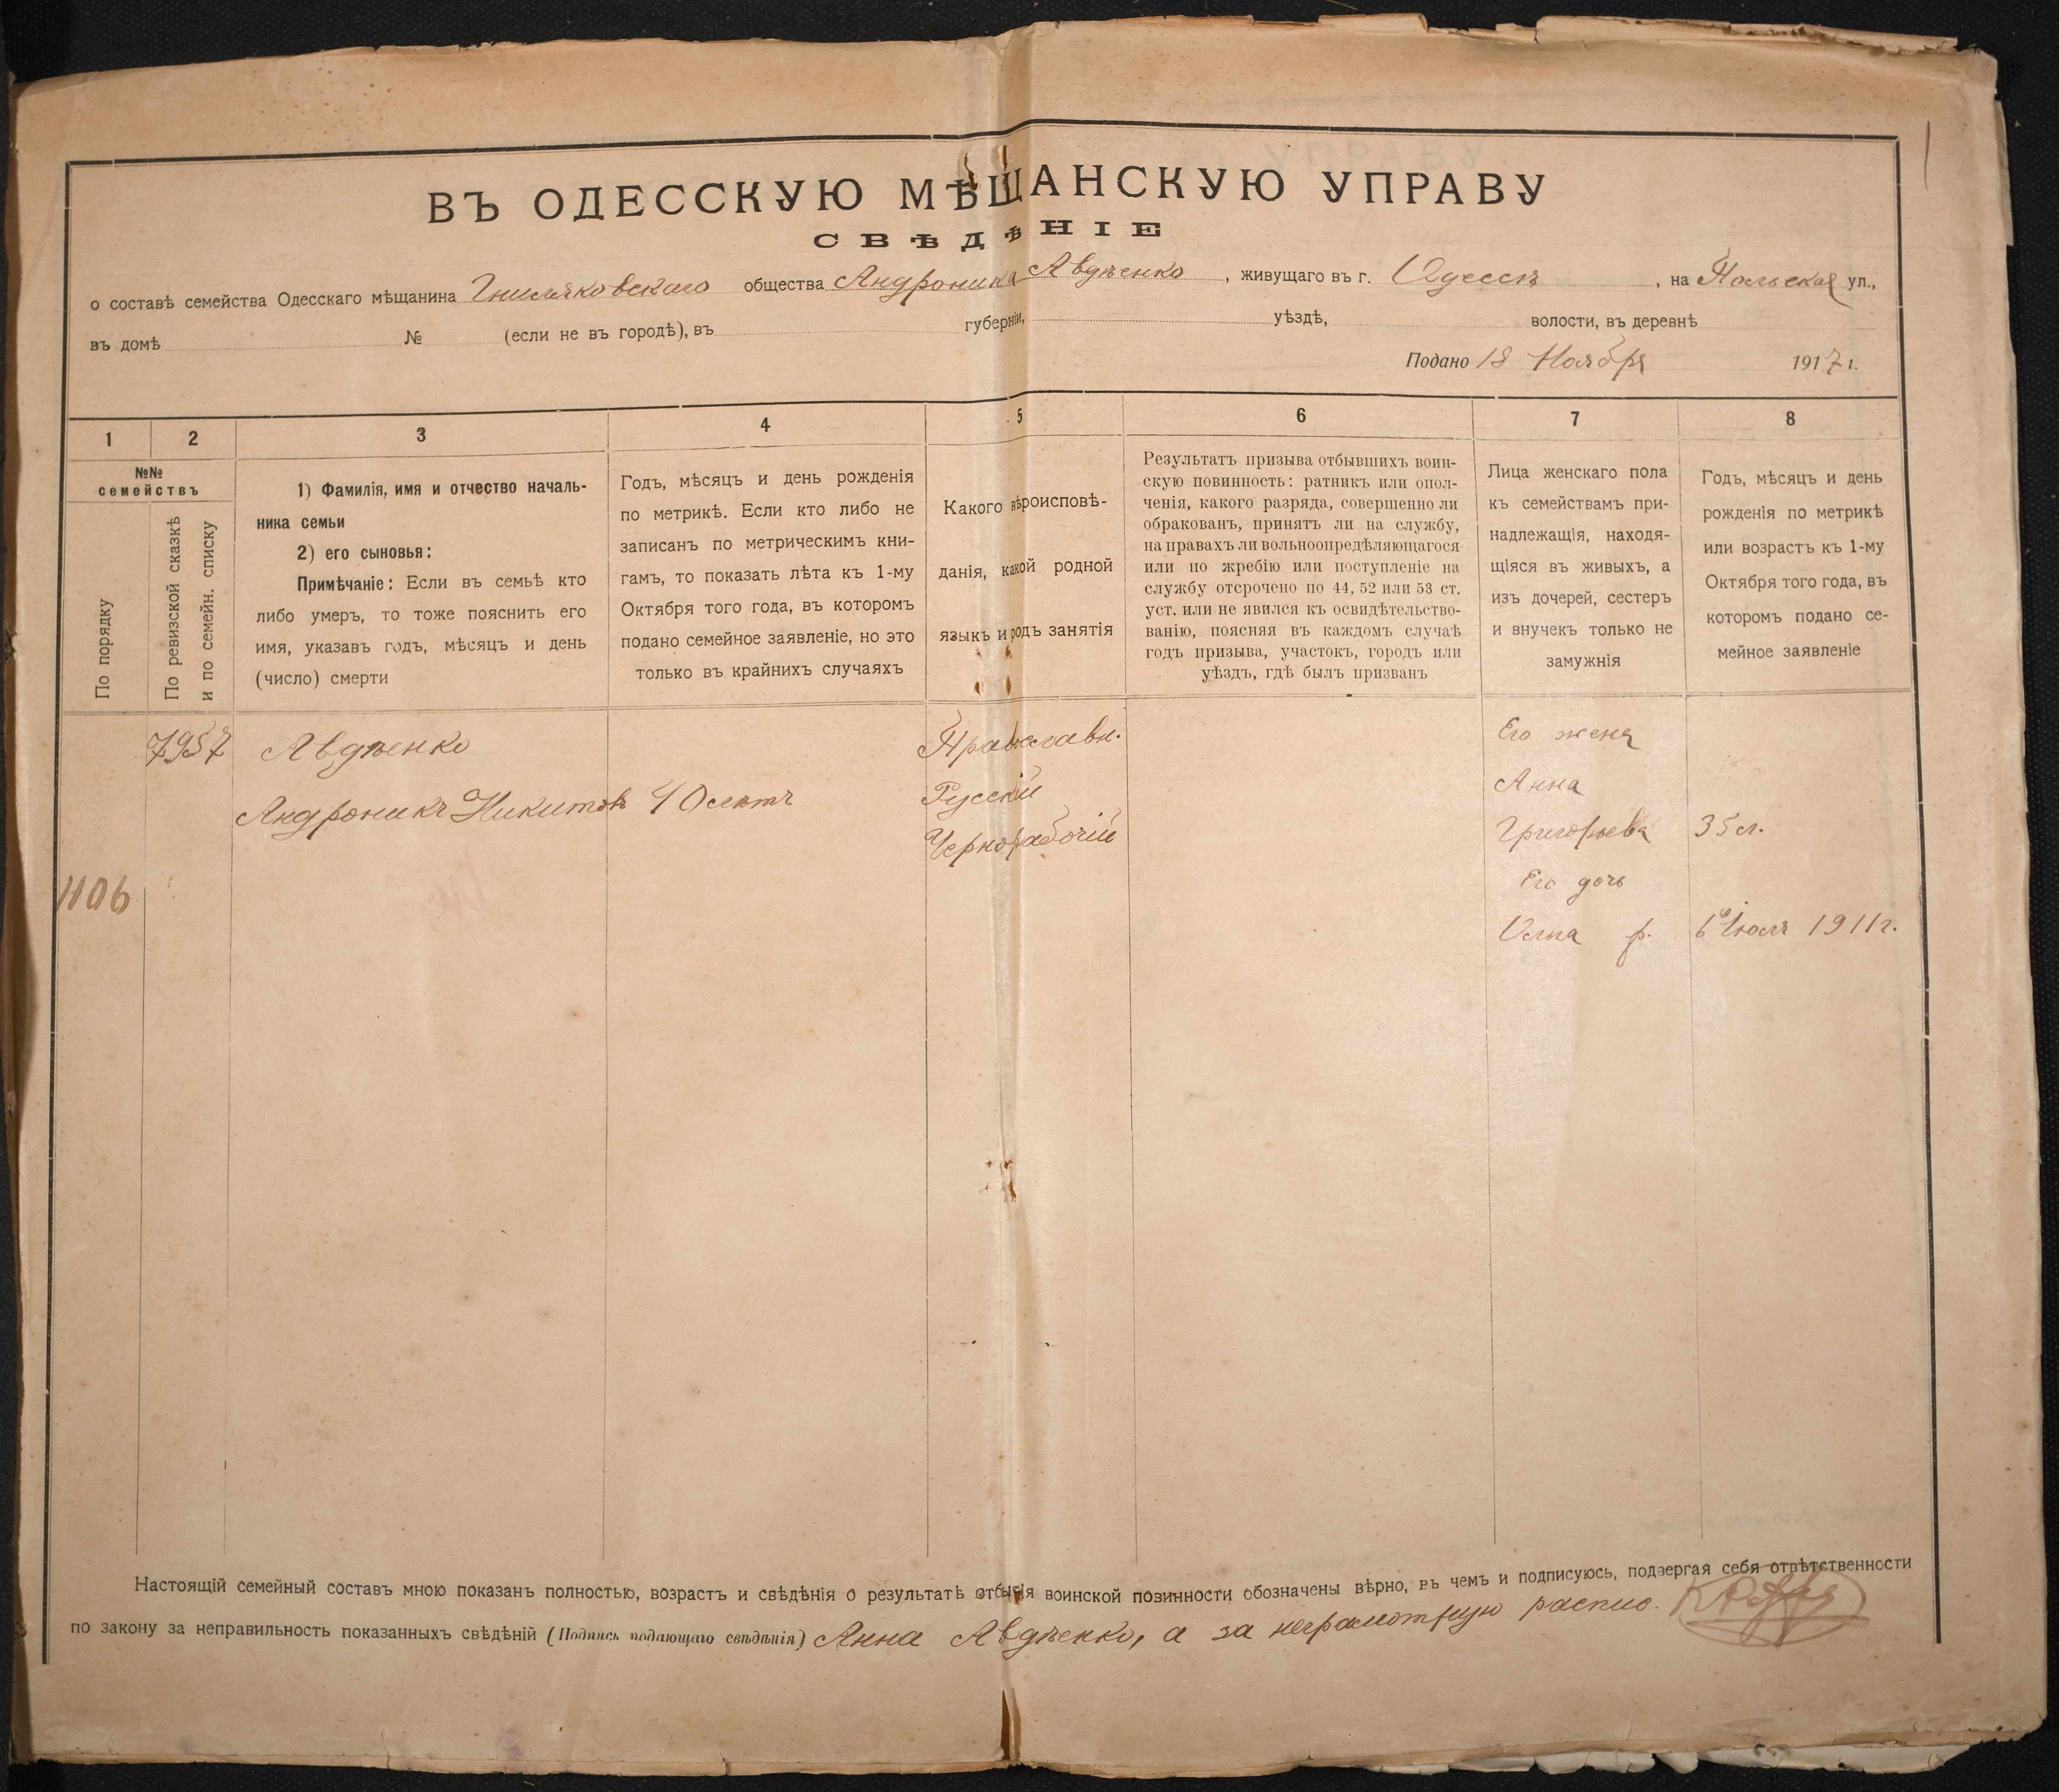 ВЪ ОДЕССКУЮ МѢЩАНСКУЮ УПРАВУ
СВѢДѢНІЕ
о составѣ семейства Одесскаго мѣщанина Гниляковскаго общества Андроника Авдѣенко, живущаго въ г. Одессѣ, на Польская ул.,
въ домѣ № (если не въ городѣ), въ губерніи, уѣздѣ, волости, въ деревнѣ
Подано 18 Ноября 1917 г.
1 2 3 4 5 6 7 8
№№
семействъ
По порядку
По ревизской сказкѣ
и по семейн. списку
1) Фамилія, имя и отчество началь-
ника семьи
2) его сыновья:
Примѣчаніе: Если въ семьѣ кто
либо умеръ, то тоже пояснить его
имя, указавъ годъ, мѣсяцъ и день
(число) смерти
Годъ, мѣсяцъ и день рожденія
по метрикѣ. Если кто либо не
записанъ по метрическимъ кни-
гамъ, то показать лѣта къ 1-му
Октября того года, въ которомъ
подано семейное заявленіе, но это
только въ крайнихъ случаяхъ
Какого вѣроисповѣ-
данія, какой родной
языкъ и родъ занятія
Результатъ призыва отбывшихъ воин-
скую повинность: ратникъ или опол-
ченія, какого разряда, совершенно ли
обракованъ, принятъ ли на службу,
на правахъ ли вольноопредѣляющагося
или по жребію или поступленіе на
службу отсрочено по 44, 52 или 53 ст.
уст. или не явился къ освидѣтельство-
ванію, поясняя въ каждомъ случаѣ
годъ призыва, участокъ, городъ или
уѣздъ, гдѣ былъ призванъ
Лица женскаго пола
къ семействамъ при-
надлежащія, находя-
щіяся въ живыхъ, а
изъ дочерей, сестеръ
и внучекъ только не
замужнія
Годъ, мѣсяцъ и день
рожденія по метрикѣ
или возрастъ къ 1-му
Октября того года, въ
которомъ подано се-
мейное заявленіе
7957 Авдѣенко
Андроникъ Никитовъ 40 лѣтъ
Православн.
Русскій
Чернорабочій
Его жена
Анна
Григорьева 35 л.
Его дочь
Ольга р. 6 Іюля 1911 г.
1106
Настоящій семейный составъ мною показанъ полностью, возрастъ и свѣдѣнія о результатѣ отбытія воинской повинности обозначены вѣрно, въ чемъ и подписуюсь, подвергая себя отвѣтственности
по закону за неправильность показанныхъ свѣдѣній (Подпись подающаго свѣдѣнія) Анна Авдѣенко, а за неграмотную распис.